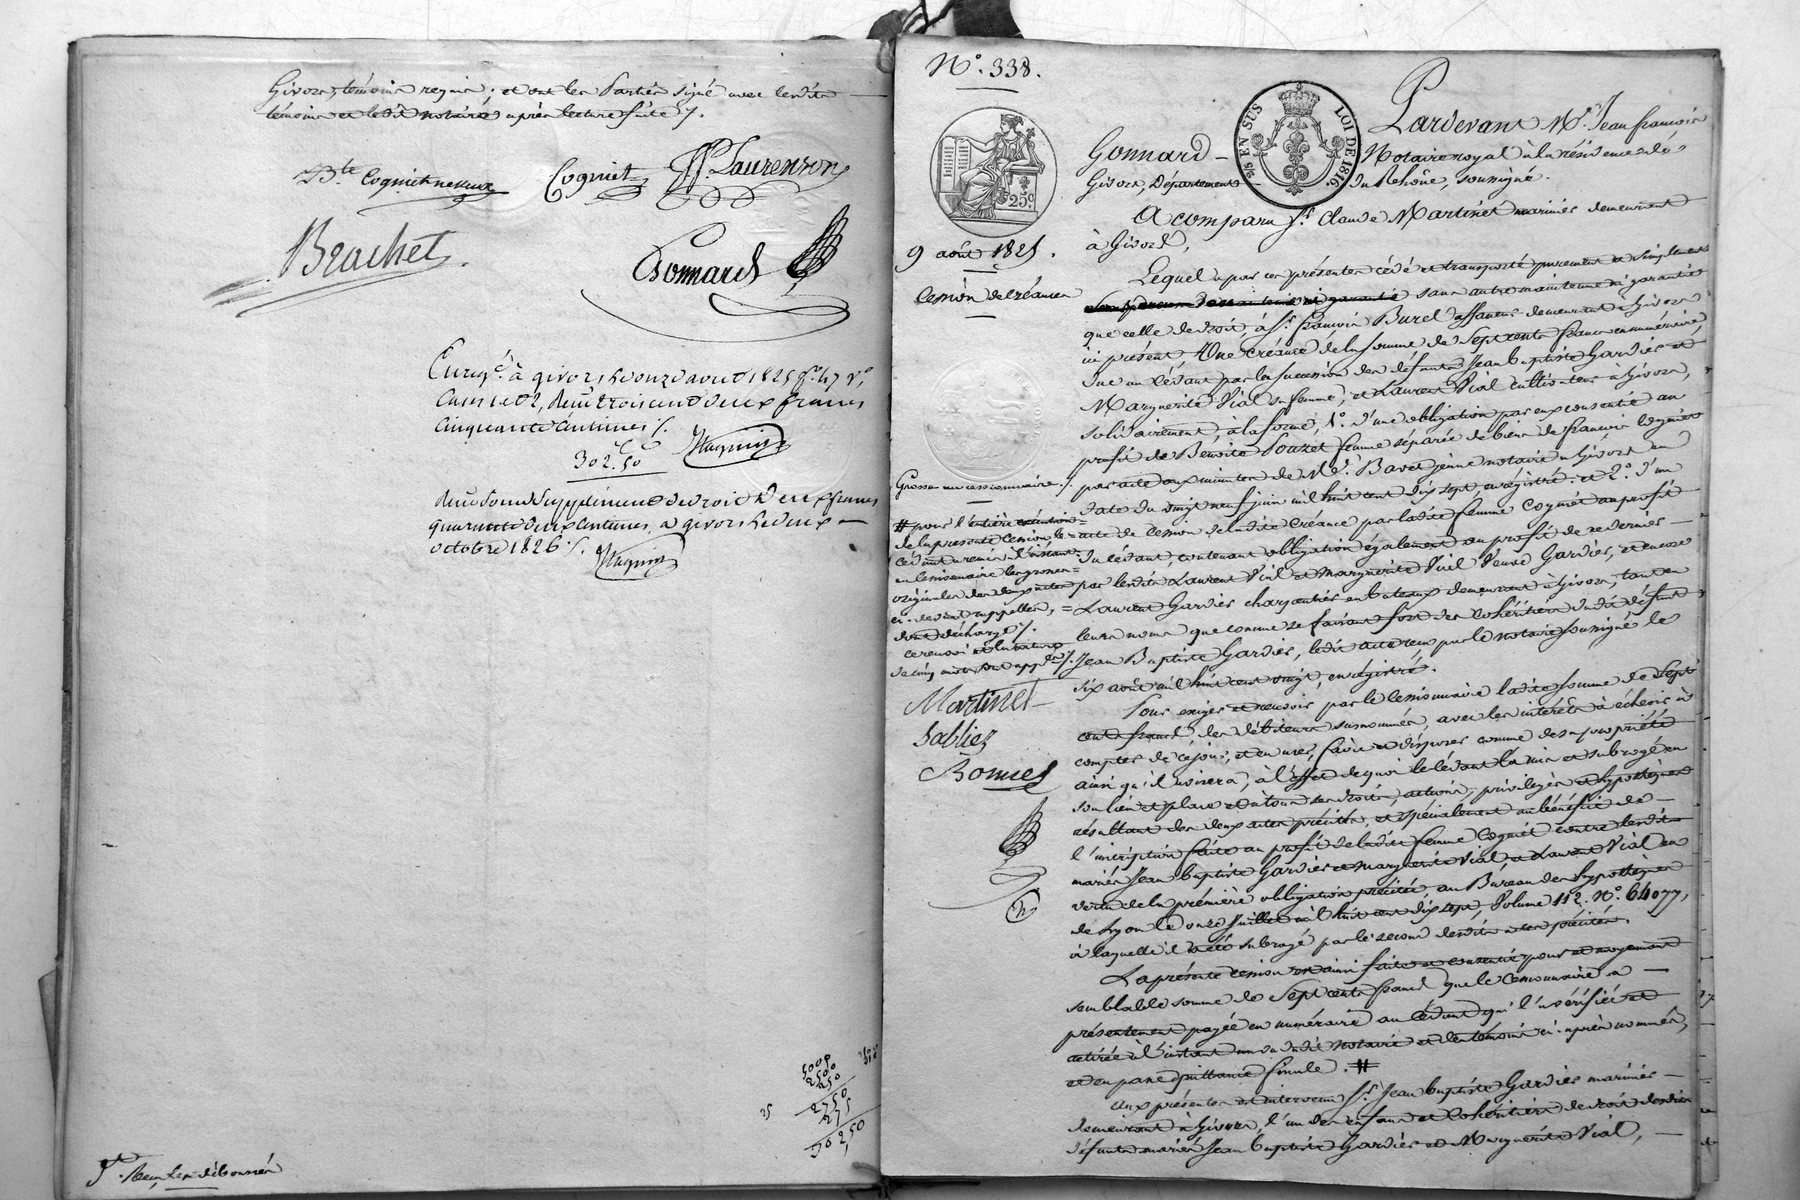 Givors, témoins requis; et ont les Parties signé avec lesdits
témoins et ledit notaire, après lecture faite /.
Coquet Laurenson
Brachet
Gonnard
Enreg.é à givors le onze aout 1825 f.o 47 v.o
Cases 1 et 2, reçu trois cent deux francs
Cinquante centimes /.
302.50
quarante deux centimes, a givors le deux
octobre 1826 /.
5000
2500
250
2750
275
25
30250
N.o 338.
EN SUS
LOI DE 1816.
25c.
Pardevant M.e Jean françois
Gonnard Notaire royal à la résidence de
Givors, Département du Rhône, soussigné.
A comparu S.r Claude Martinet marinier demeurant
à Givors,
9 août 1825.
Cession de créances
Lequel a par ces présentes cédé et transporté purement et simplement
sans autre maintenue ni garantie
que celle de droit, à S.r françois Burel affaneur demeurant à Givors
ici présent, Une créance de la somme de Sept cents francs en numéraire,
due au Cédant par la succession des défunts Jean Baptiste Gardies et
Marguerite Vial sa femme, et Laurent Vial cultivateur à Givors,
solidairement, à la forme, 1.o d'une obligation par eux consentie au
profit de Benoite Pouzet femme séparée de biens de françois Cognet
par acte aux minutes de M.e Bavet jeune notaire à Givors en
date du vingt neuf juin mil huit cent dix sept, enregistré; et 2.o d'un
acte de cession de ladite créance par ladite femme Cognet au profit
du cédant, contenant obligation également au profit de ce dernier
par lesdits Laurent Vial et Marguerite Vial Veuve Gardies, et encore
Laurent Gardies charpentier en bateaux demeurant à Givors, tant en
leurs noms que comme se faisant fort des cohéritiers dudit défunt
Jean Baptiste Gardies, ledit acte reçu par le notaire soussigné le
six août mil huit cent vingt, enregistré.
Grosse au cessionnaire /.
# pour l'entière exécution
de la présente cession, le
cédant a remis à l'instant
au cessionnaire les grosses
originales des deux actes
ci-devant rappellés,
dont décharge /.
Martinet
Sablier
Bonnel
Pour exiger et recevoir par le cessionnaire ladite somme de Sept
cents francs des débiteurs susnommés, avec les intérêts à échoir à
compter de ce jour, et en user, faire et disposer comme de sa propriété
ainsi qu'il avisera; à l'effet de quoi le cédant l'a mis et subrogé en
son lieu et place et à tous ses droits, actions, privilèges et hypothèques
résultant des deux actes précités, et spécialement au bénéfice de
l'inscription faite au profit de ladite femme Cognet contre lesdits
mariés Jean Baptiste Gardies et Marguerite Vial, et Laurent Vial en
vertu de la première obligation précitée, au Bureau des hypothèques
de Lyon le onze juillet mil huit cent dix sept, Volume 112. N.o 64077,
à laquelle il a été subrogé par le second desdits actes précités.
La présente cession est ainsi faite et consentie pour et moyennant
semblable somme de Sept cents francs que le cessionnaire a
présentement payée en numéraire au cédant qui l'a vérifiée et
retirée à l'instant au vu dudit notaire et des témoins ci-après nommés,
et en passe quittance finale. #
Aux présentes est intervenu S.r Jean Baptiste Gardies marinier
demeurant à Givors, l'un des enfans et cohéritiers de droit desdits
défunts mariés Jean Baptiste Gardies et Marguerite Vial,